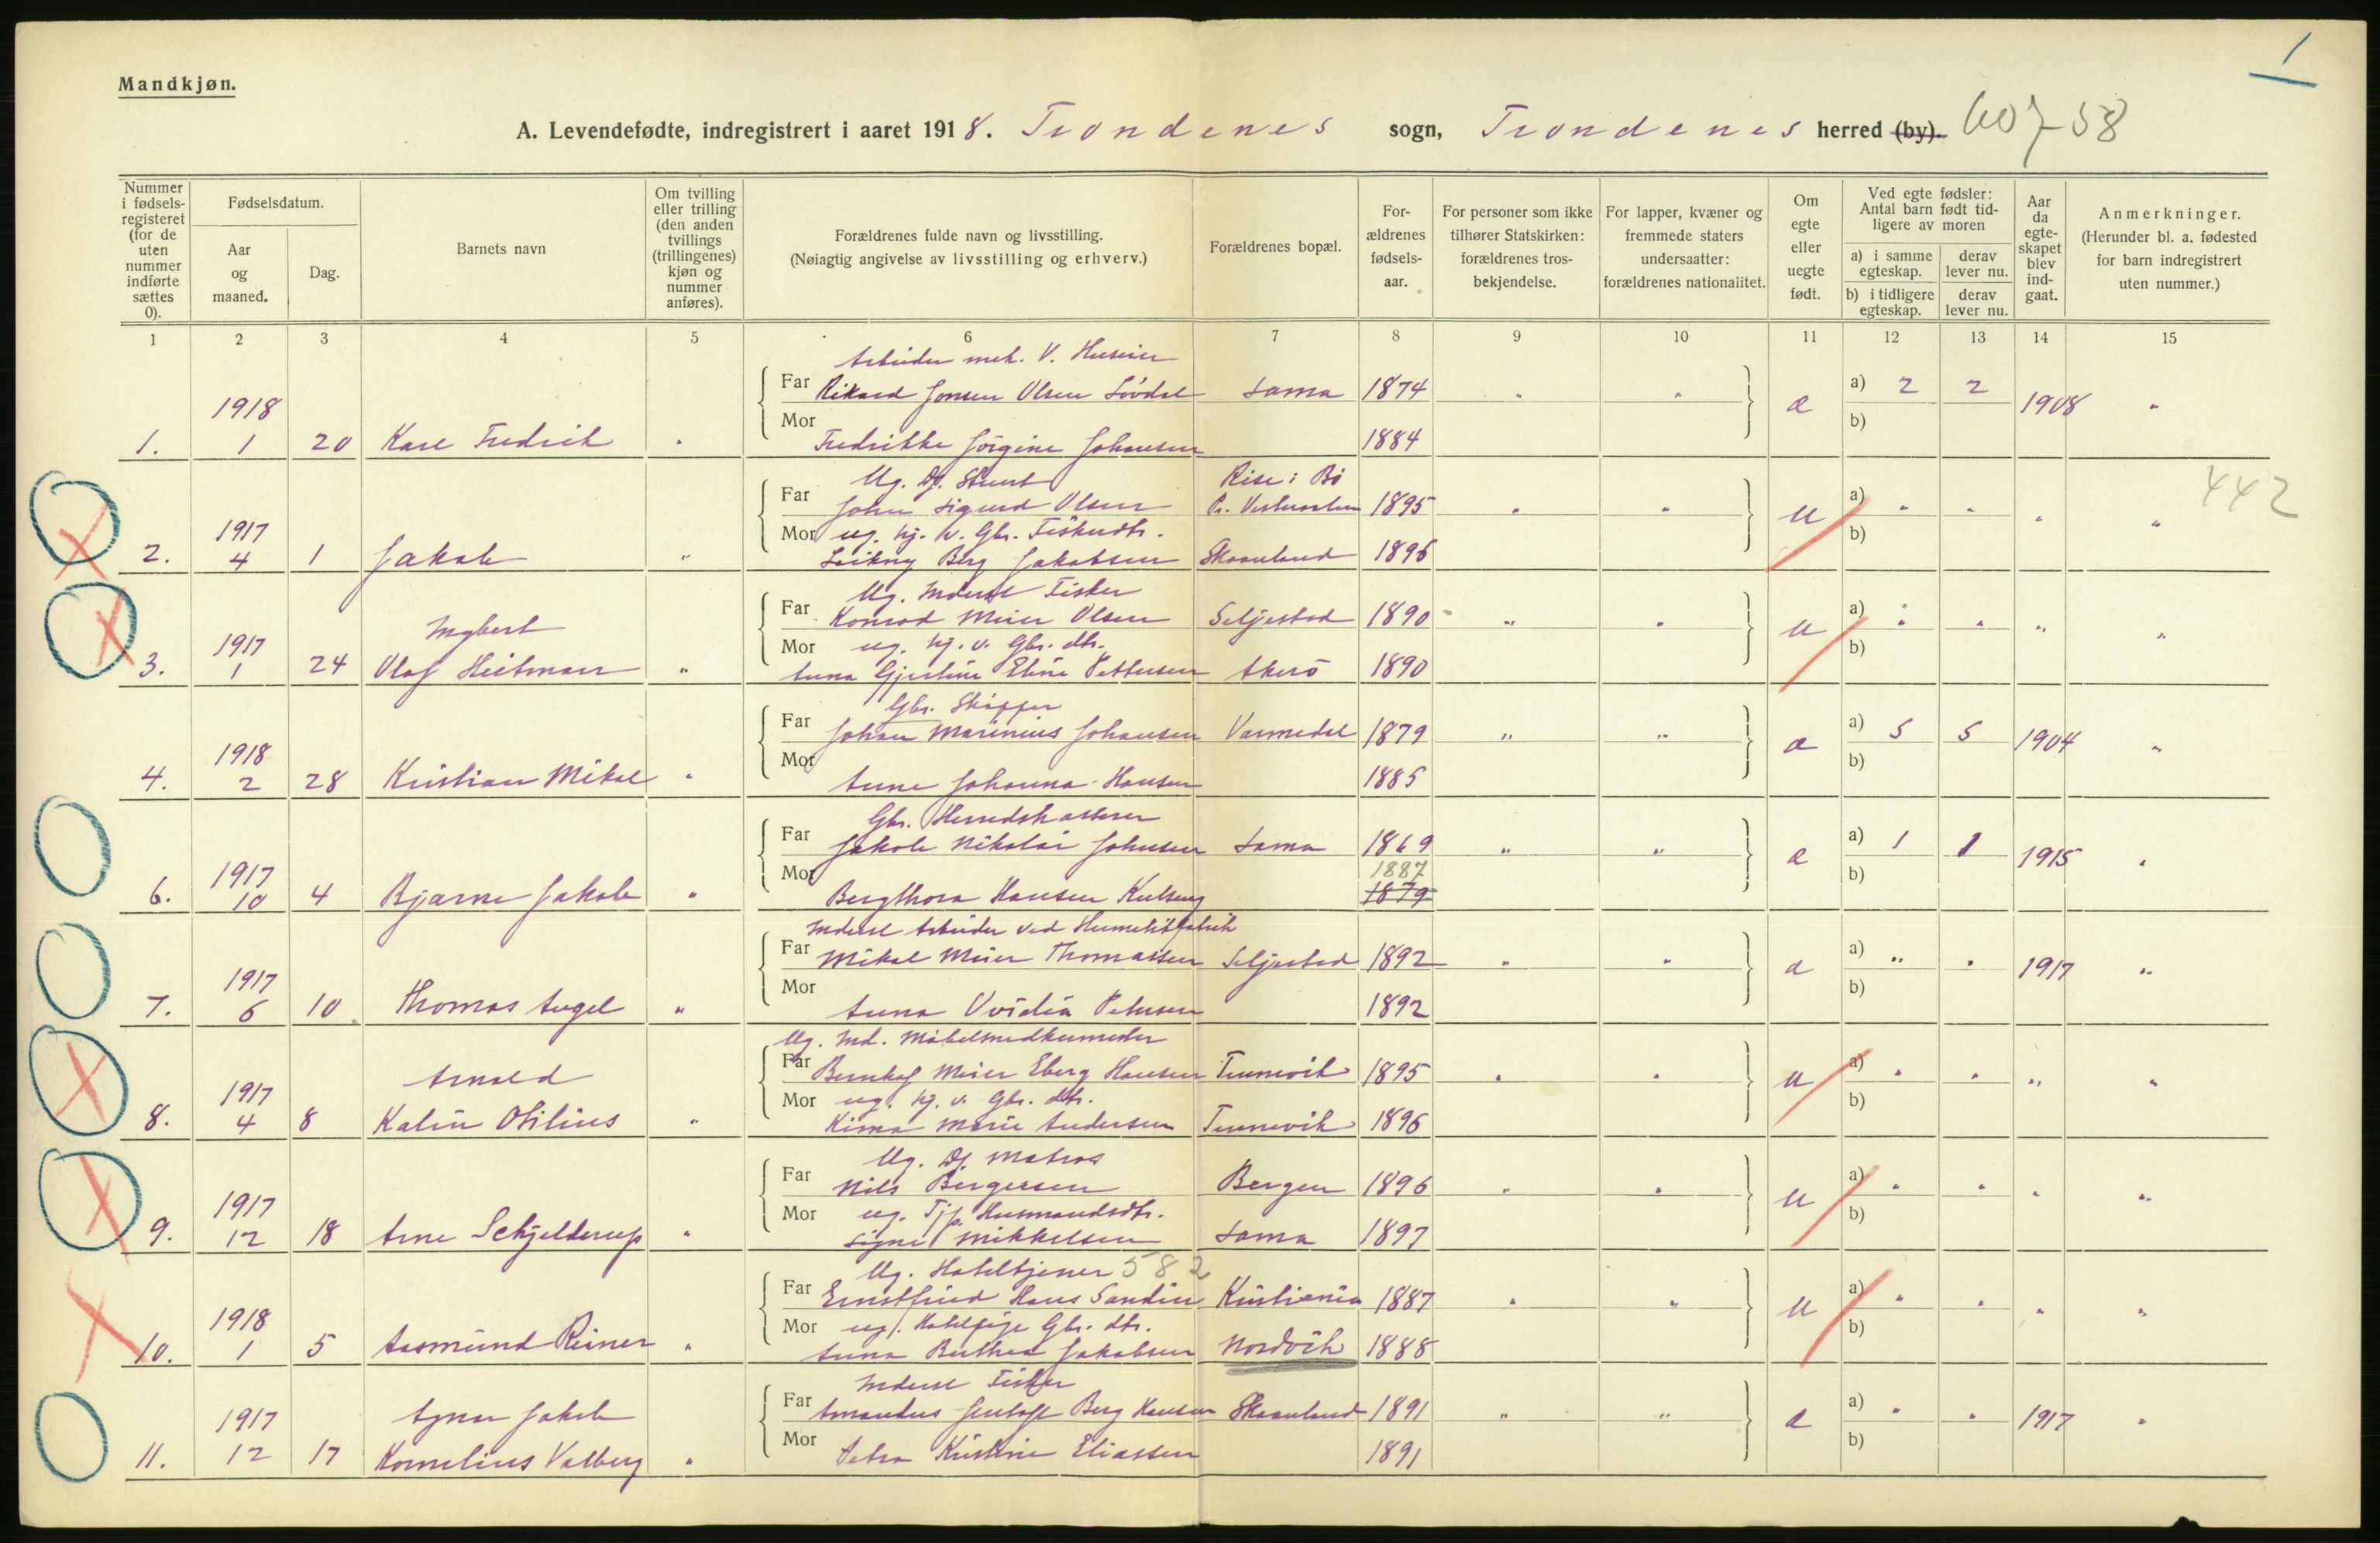 1
Mandkjøn.
A. Levendefødte, indregistrert i aaret 1918. Trondenes sogn, Trondenes herred (by). 607-58
Nummer i fødsels-registeret (for de uten nummer indførte sættes 0).
Fødselsdatum.
Aar og maaned.
Dag.
Barnets navn
Om tvilling eller trilling (den anden tvillings (trillingenes) kjøn og nummer anføres).
Forældrenes fulde navn og livsstilling.
(Nøiagtig angivelse av livsstilling og erhverv.)
Forældrenes bopæl.
For-ældrenes fødsels-aar.
For personer som ikke tilhører Statskirken: forældrenes tros-bekjendelse.
For lapper, kvæner og fremmede staters undersaatter: forældrenes nationalitet.
Om egte eller uegte født.
Ved egte fødsler: Antal barn født tid-ligere av moren
a) i samme egteskap.
derav lever nu.
b) i tidligere egteskap.
derav lever nu.
Aar da egte-skapet blev ind-gaat.
Anmerkninger.
(Herunder bl. a. fødested for barn indregistrert uten nummer.)
1 2 3 4 5 6 7 8 9 10 11 12 13 14 15
Arbeider mek. V. Huseier
Far Rikard Jonsen Olsen Løvdal Sama 1874 " " e a) 2 2 1908 "
1918
Mor b)
1. 1 20 Kare Fredrik " Fredrikke Jørgine Johansen 1884
Ug. Df. Stuert Rise i Bø
Far John Sigurd Olsen Pr. Vesteraalen 1895 " " u a) " " " " 442
1917
Mor ug. hj. v. Gbr. Fiskerdtr. b)
2. 4 1 Jakob " Leikny Berg Jakobsen Skaanland 1896
Ug. Inderst Fisker
Far Konrad Meier Olsen Seljestad 1890 " " u a) " " " "
Ingbert
1917
Mor ug. hj. v. Gbr. dtr. b)
3. 1 24 Olaf Heitmann " Anna Gjertine Eline Pettersen Akerö 1890
Gbr. Skipper
Far Johan Marinius Johansen Varmedal 1879 " " e a) 5 5 1904 "
1918
Mor b)
4. 2 28 Kristian Mikal " Anne Johanna Hansen 1885
Gbr. Herredskasserer
Far Jakob Nikolai Johnsen Sama 1869 " " e a) 1 1 1915 "
1917
Mor 1887 b)
6. 10 4 Bjarne Jakob " Bergthora Hansen Kulseng 1879
Inderst Arbeider ved Hermetikfabrik
Far Mikal Meier Thomassen Seljestad 1892 " " e a) " " 1917 "
1917
Mor b)
7. 6 10 Thomas Angel " Anna Ovidia Petersen 1892
Ug. Ind.
Far Bernhof Meier Eberg Hansen Tennevik 1895 " " u a) " " " "
Arnold
1917
Mor ug. hj. v. Gbr. dtr. b)
8. 4 8 Kalin Otilius " Kirna Marie Andersen Tennevik 1896
Ug. Df. Matros
Far Nils Bergersen Bergen 1896 " " u a) " " " "
1917
Mor ug. Tjp. Husmandsdtr. b)
9. 12 18 Arne Schjelderup " Signe Mikkelsen Sama 1897
Ug. Hoteltjener 582
Far Ernstfried Hans Sandin Kristiania 1887 " " u a) " " " "
1918
Mor ug. Hotelpige Gbr. dtr. b)
10. 1 5 Aasmund Reiner " Anna Berthea Jakobsen Nordvik 1888
Inderst Fisker
Far Amandus Jentoft Berg Hansen Skaanland 1891 " " e a) " " 1917 "
1917 Agnar Jakob
Mor b)
11. 12 17 Kornelius Valberg " Petra Kristine Eliassen 1891